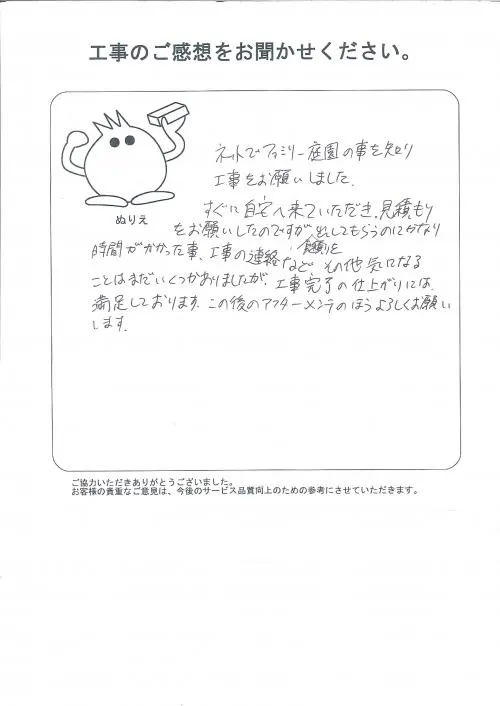 工事のご感想をお聞かせください。
ネットでファミリー庭園の事を知り
工事をお願いしました。
すぐに自宅へ来ていただき、見積もり
をお願いしたのですが、出してもらうのにかなり
時間がかかった事、工事の連絡など、その他気になる
ことはまだいくつかありましたが、工事完了の仕上がりには、
満足しております。この後のアフターメンテのほうよろしくお願い
します。
ぬりえ
ご協力いただきありがとうございました。
お客様の貴重なご意見は、今後のサービス品質向上のための参考にさせていただきます。